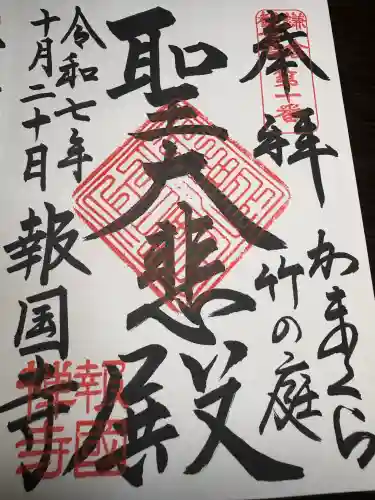 奉拝
かまくら
竹の庭
聖大悲殿
令和七年
十月二十日
報国寺
第十番
報國禅寺